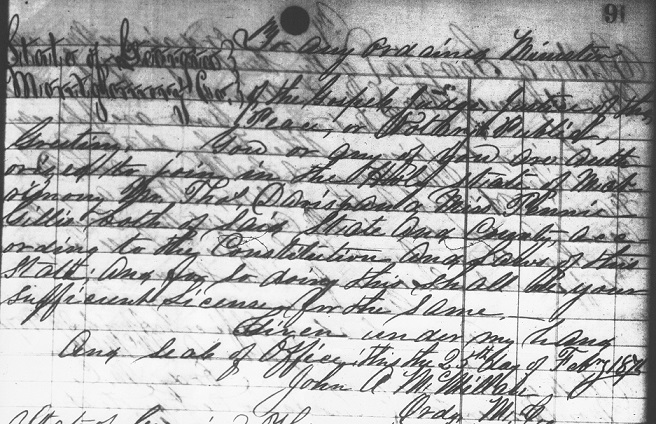 91
State of Georgia } To any ordained Minister
Montgomery Co. } of the Gospel, Judge, Justice of the
Peace, or Notary Public,
Greeting. You or any of you are auth
orized to join in the Holy state of Mat
rimony Mr. Thos and Miss
Gillis both of said State and County, acc
ording to the Constitution and Laws of this
State. And for so doing this shall be your
sufficient License for the same.
Given under my hand
and Seal of Office, this the 25th day of Feby
John A McMillan
Ordy M. Co
State of